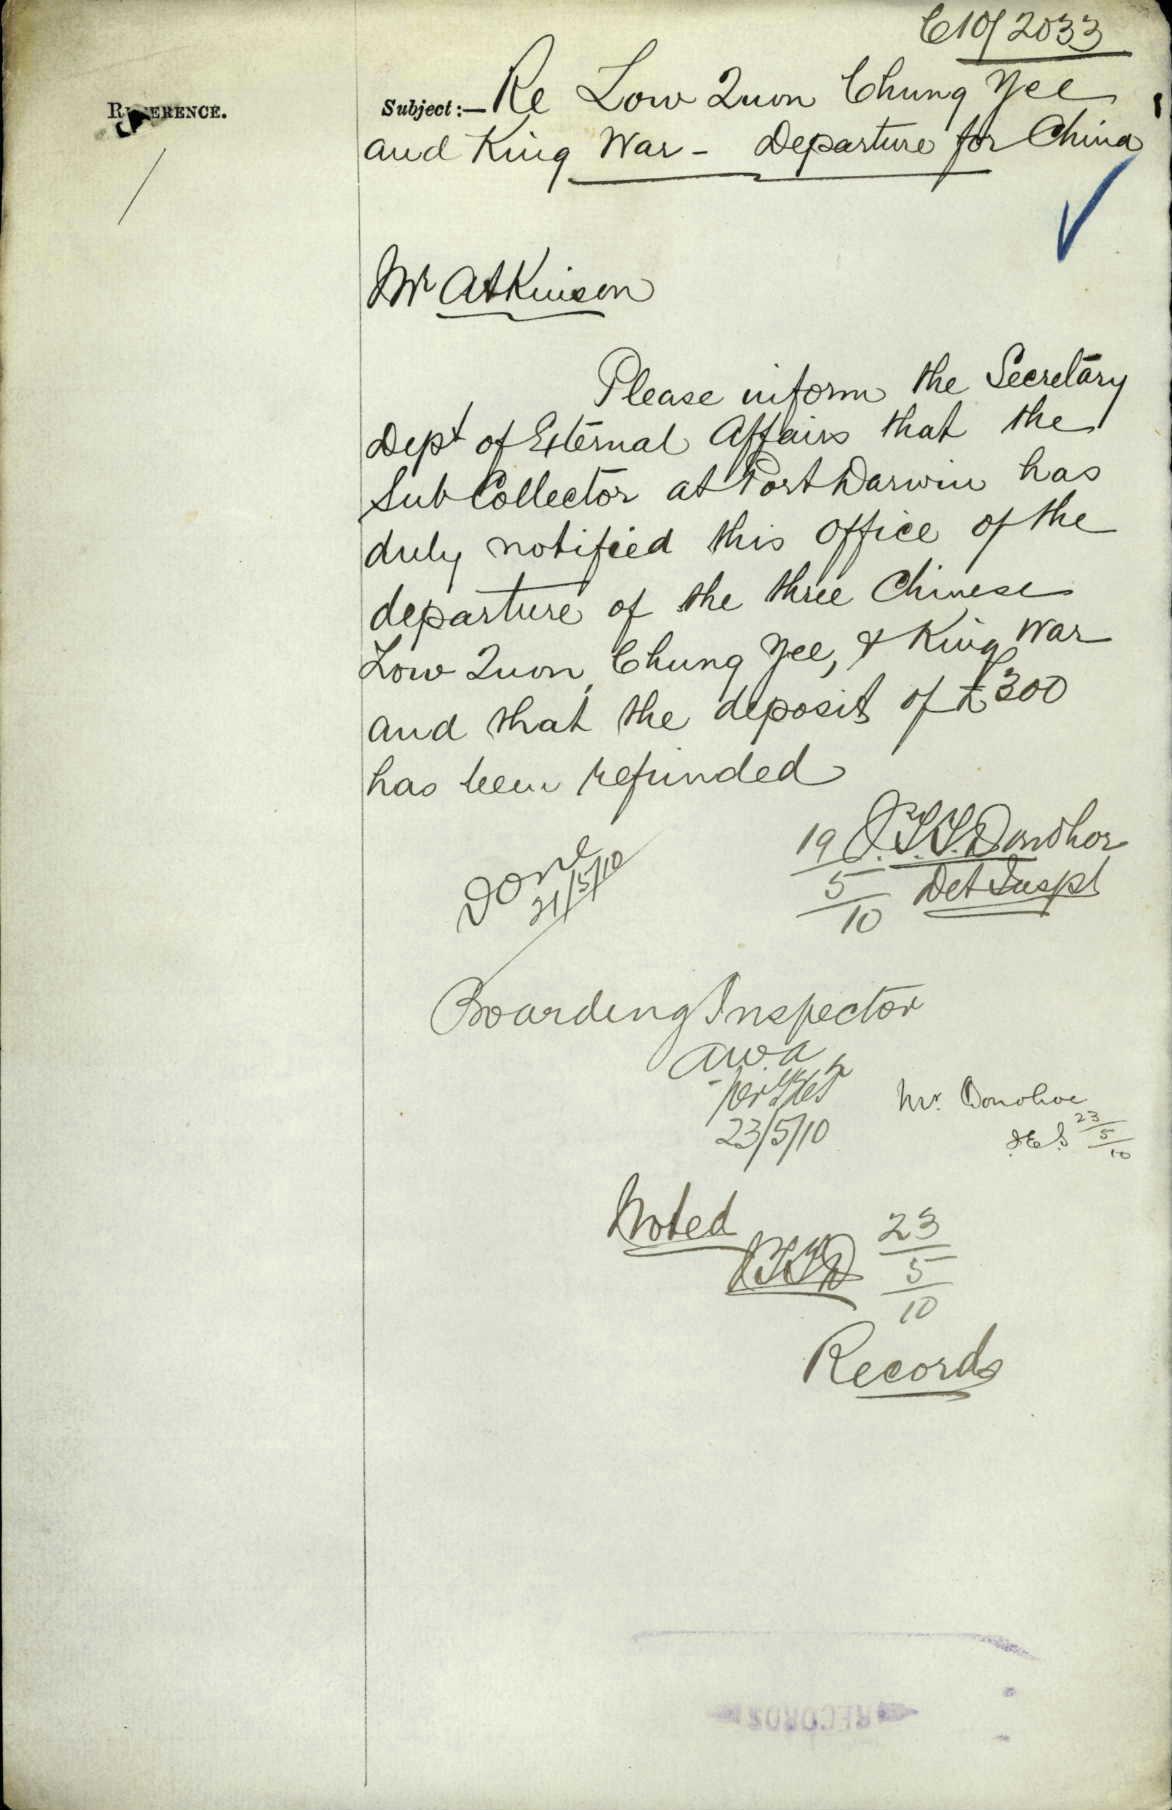 C10/2033
REFERENCE.
Subject:— Re Low Quon Chung Yee
and King War - Departure for China
Mr Atkinson
Please inform the Secretary
Dept of External Affairs that the
Sub Collector at Port Darwin has
duly notified this office of the
departure of the three Chinese
Low Quon, Chung Yee, & King War
and that the deposit of £300
has been refunded
19 J.T.T. Donohoe
5 Det Inspr
10
Done
21/5/10
Boarding Inspector
a.w.a
per
23/5/10
Mr. Donohoe
23
5
10
Noted
JTTD
23
5
10
Records
RECORDS